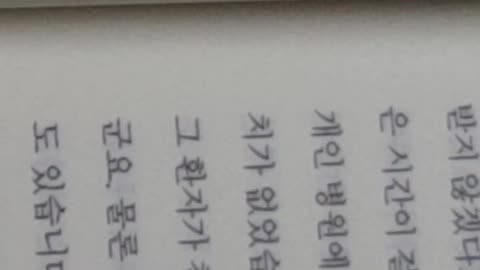 받지 않겠다
은 시간이
개인 병원에
치가 없었습
그 환자가
군요. 물론
도 있습니